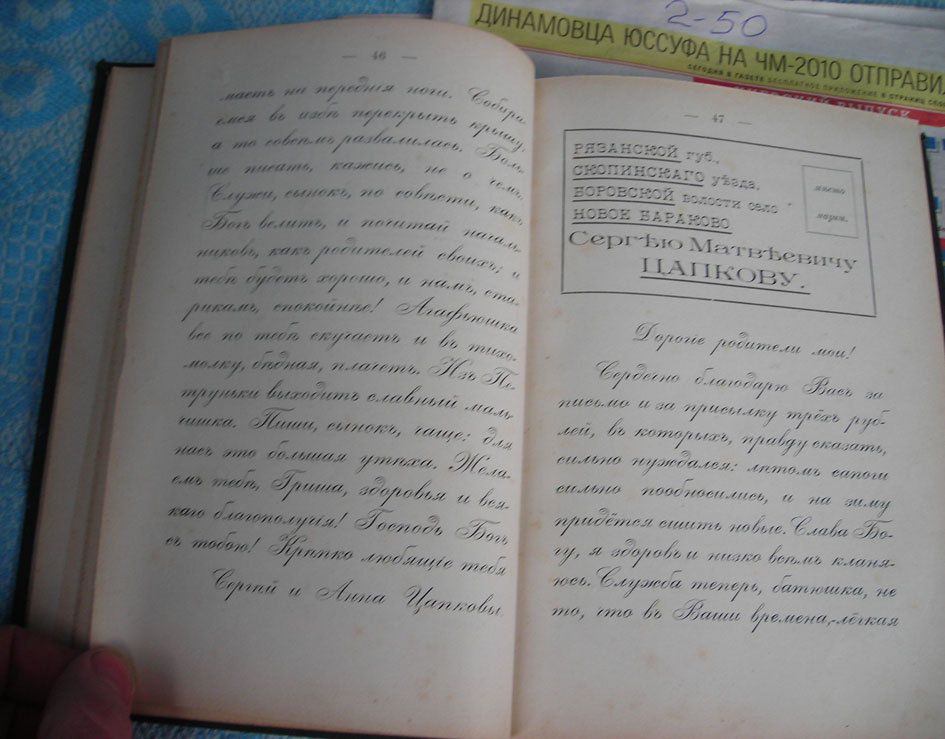 2-50
ДИНАМОВЦА ЮССУФА НА ЧМ-2010 ОТПРАВИ
СЕГОДНЯ В ГАЗЕТЕ БЕСПЛАТНОЕ ПРИЛОЖЕНИЕ 8 СТРАНИЦ
ВЫПУСК
— 46 —
маетъ на переднія ноги. Собира
емся въ избѣ перекрыть крышу:
а то совсѣмъ развалилась. Боль
ше писать, кажись, не о чемъ.
Служи, сынокъ, по совѣсти, какъ
Богъ велитъ, и почитай началь
никовъ, какъ родителей своихъ; и
тебѣ будетъ хорошо, и намъ, ста
рикамъ, спокойнѣе! Агафьюшка
все по тебѣ скучаетъ и въ тихо
молку, бѣдная, плачетъ. Изъ Пе
труньки выходитъ славный маль
чишка. Пиши, сынокъ, чаще: для
насъ это большая утѣха. Жела
емъ тебѣ, Гриша, здоровья и вся
каго благополучія! Господь Богъ
съ тобою! Крѣпко любящіе тебя
Сергѣй и Анна Цапковы.
— 47 —
РЯЗАНСКОЙ губ.,
СКОПИНСКАГО уѣзда,
БОРОВСКОЙ волости село
НОВОЕ БАРАКОВО
Сергѣю Матвѣевичу
ЦАПКОВУ.
мѣсто
марки.
Дорогіе родители мои!
Сердечно благодарю Васъ за
письмо и за присылку трёхъ руб-
лей, въ которыхъ, правду сказать,
сильно нуждался: лѣтомъ сапоги
сильно пообносились, и на зиму
придётся сшить новые. Слава Бо-
гу, я здоровъ и низко всѣмъ кланя-
юсь. Служба теперь, батюшка, не
то, что въ Ваши времена,-лёгкая